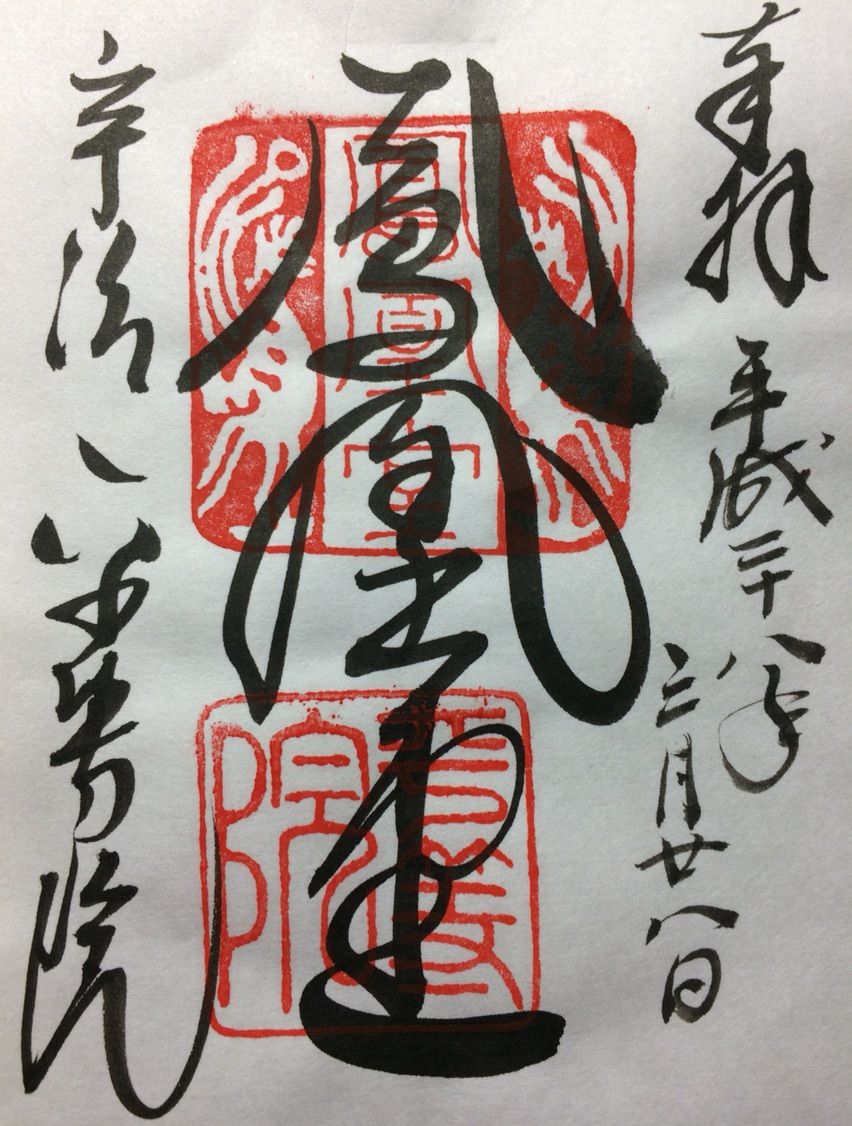 奉拝
平成二十八年
三月廿八日
鳳凰堂
宇治
平等院
鳳凰堂